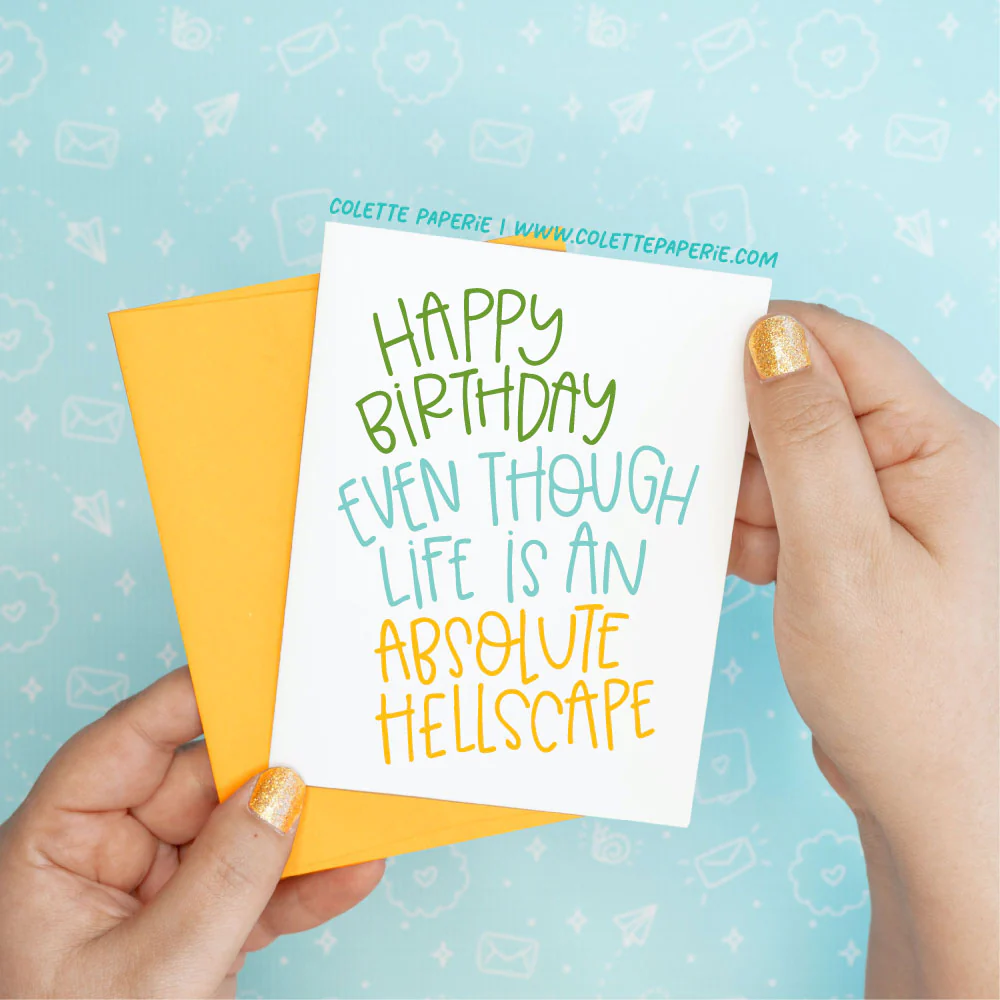 COLETTE PAPERiE | WWW.COLETTEPAPERiE.COM
HAPPY
BiRTHDAY
EVEN THOUGH
LiFE iS AN
ABSOLUTE
HELLSCAPE